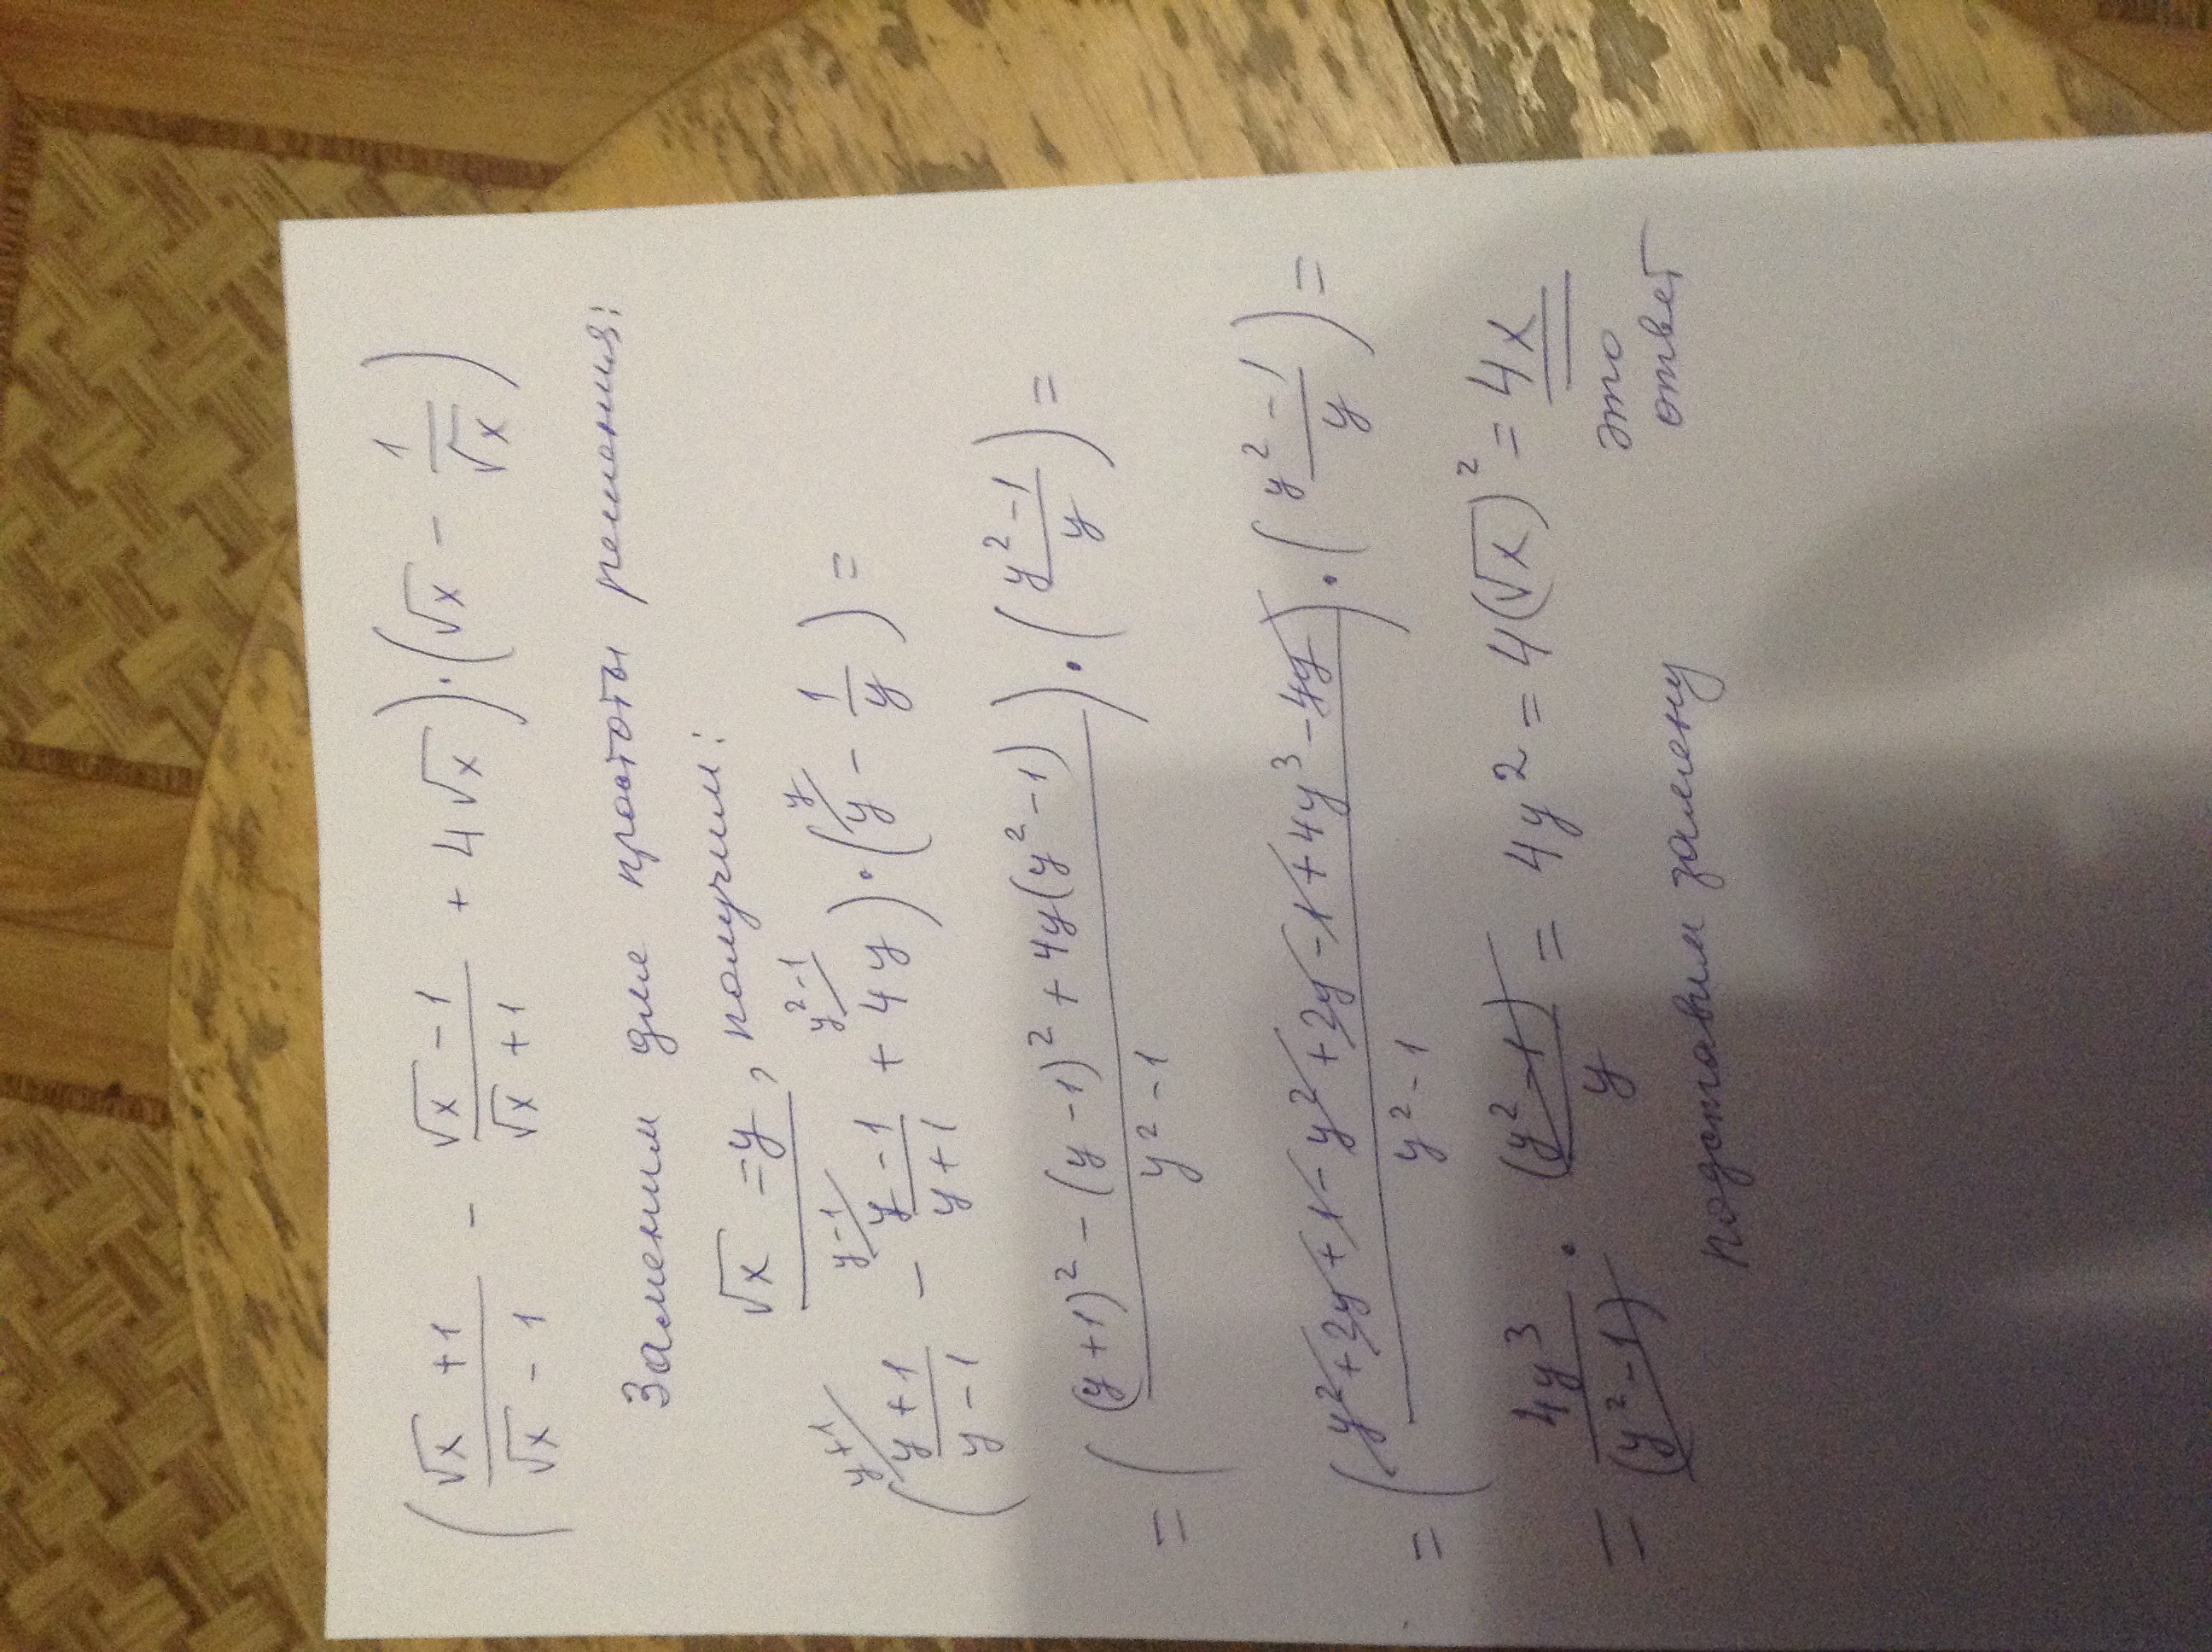 (√x +1 / √x - 1 - √x - 1 / √x + 1 + 4√x) · (√x - 1/√x)
Заменим для простоты решения:
√x = y, получим:
(y+1 / y-1 ^{y+1} - y-1 / y+1 ^{y-1} + 4y ^{y²-1}) · (y ^{y} - 1/y) =
= ((y+1)² - (y-1)² + 4y(y²-1) / y²-1) · (y²-1 / y) =
= (y²+2y+1-y²+2y-1+4y³-4y / y²-1) · (y²-1 / y) =
= 4y³ / (y²-1) · (y²-1) / y = 4y² = 4(√x)² = 4x
это
ответ
подставим замену